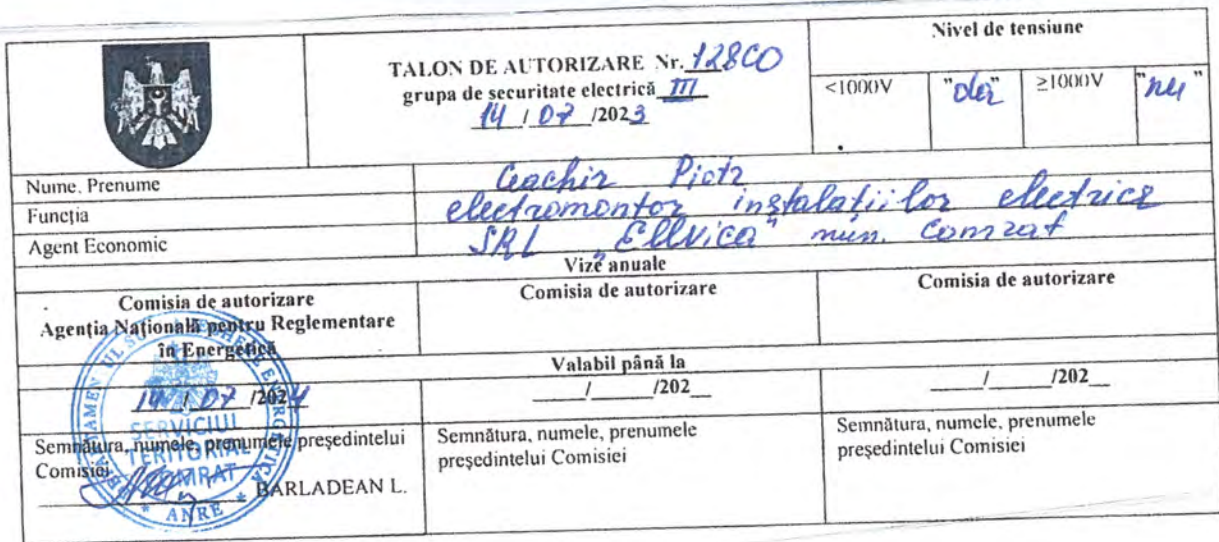 TALON DE AUTORIZARE Nr. 128CO
grupa de securitate electrică III
14 / 07 /2023
Nivel de tensiune
<1000V "da" ≥1000V "nu"
Nume, Prenume Ceachir Piotr
Funcția electromontor instalațiilor electrice
Agent Economic SRL „Ellvica" mun. Comrat
Vize anuale
Comisia de autorizare
Agenția Națională pentru Reglementare
în Energetică
Comisia de autorizare
Comisia de autorizare
Valabil până la
14 / 07 /2024
___/___/202__
___/___/202__
Semnătura, numele, prenumele președintelui
Comisiei
BARLADEAN L.
Semnătura, numele, prenumele
președintelui Comisiei
Semnătura, numele, prenumele
președintelui Comisiei
SERVICIUL
TERITORIAL
COMRAT
* ANRE *